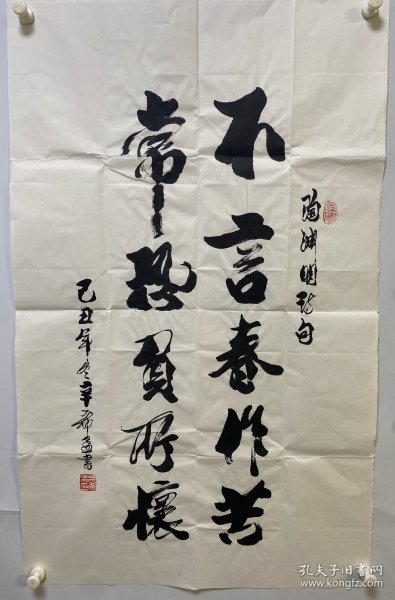 陶渊明诗句
不言春作苦
常恐负所怀
己丑年冬辛希孟书
孔夫子旧书网
www.kongfz.com